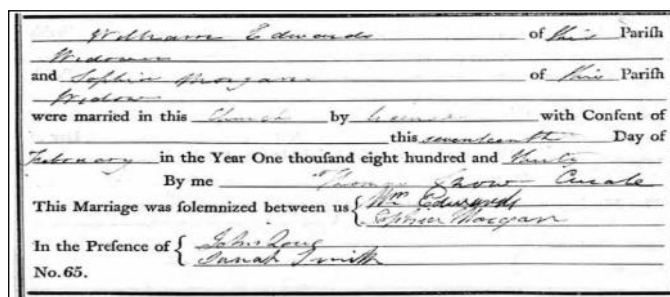 William Edwards of this Pariſh
Widower
and Sophia Morgan of this Pariſh
Widow
were married in this Church by Licence with Conſent of
this seventeenth Day of
February in the Year One thouſand eight hundred and Thirty
By me Thomas Snow Curate
This Marriage was ſolemnized between us { Wm Edwards
Sophia Morgan
In the Preſence of { John
Sarah Smith
No. 65.